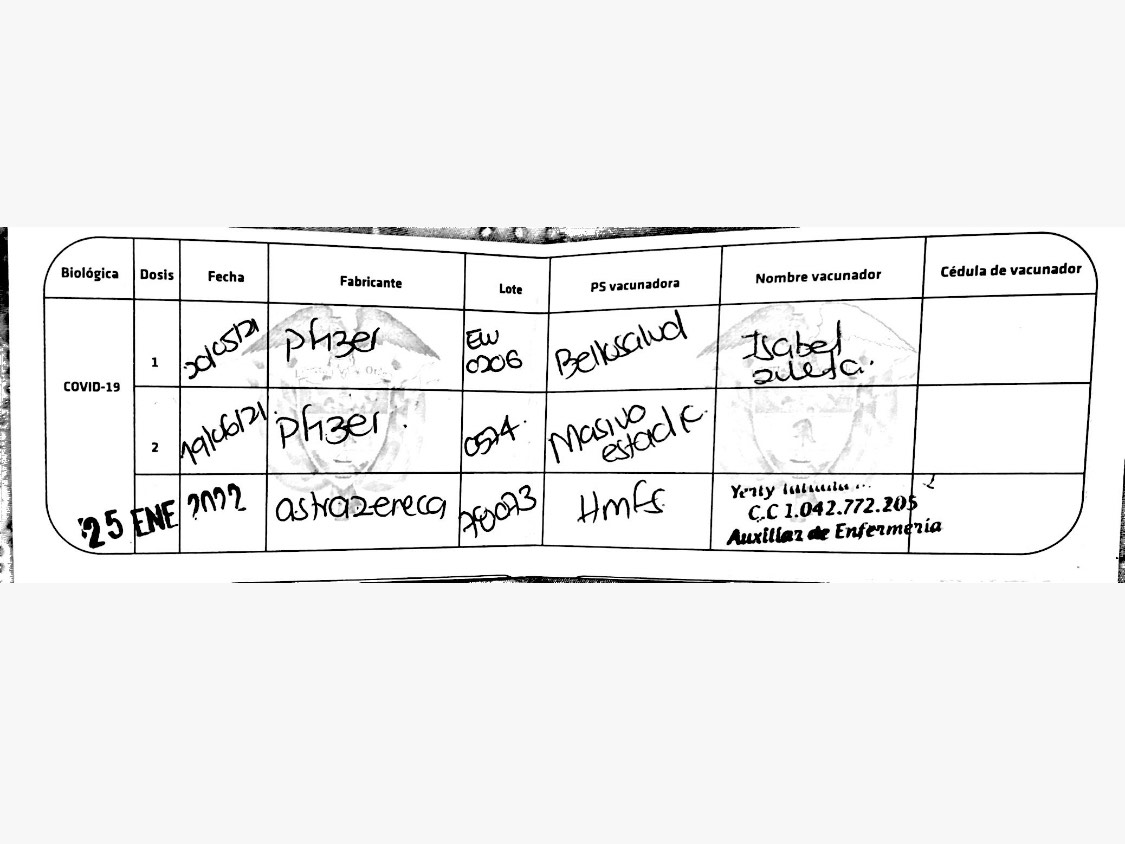 Biológica Dosis Fecha Fabricante Lote PS vacunadora Nombre vacunador Cédula de vacunador
COVID-19
1 20/05/21 Pfizer EW 0206 Bellosalud Isabel
2 19/06/21 Pfizer. 0574. Masivo
25 ENE 2022 astrazeneca Hmfs
Yeny
C.C 1.042.772.205
Auxiliar de Enfermería